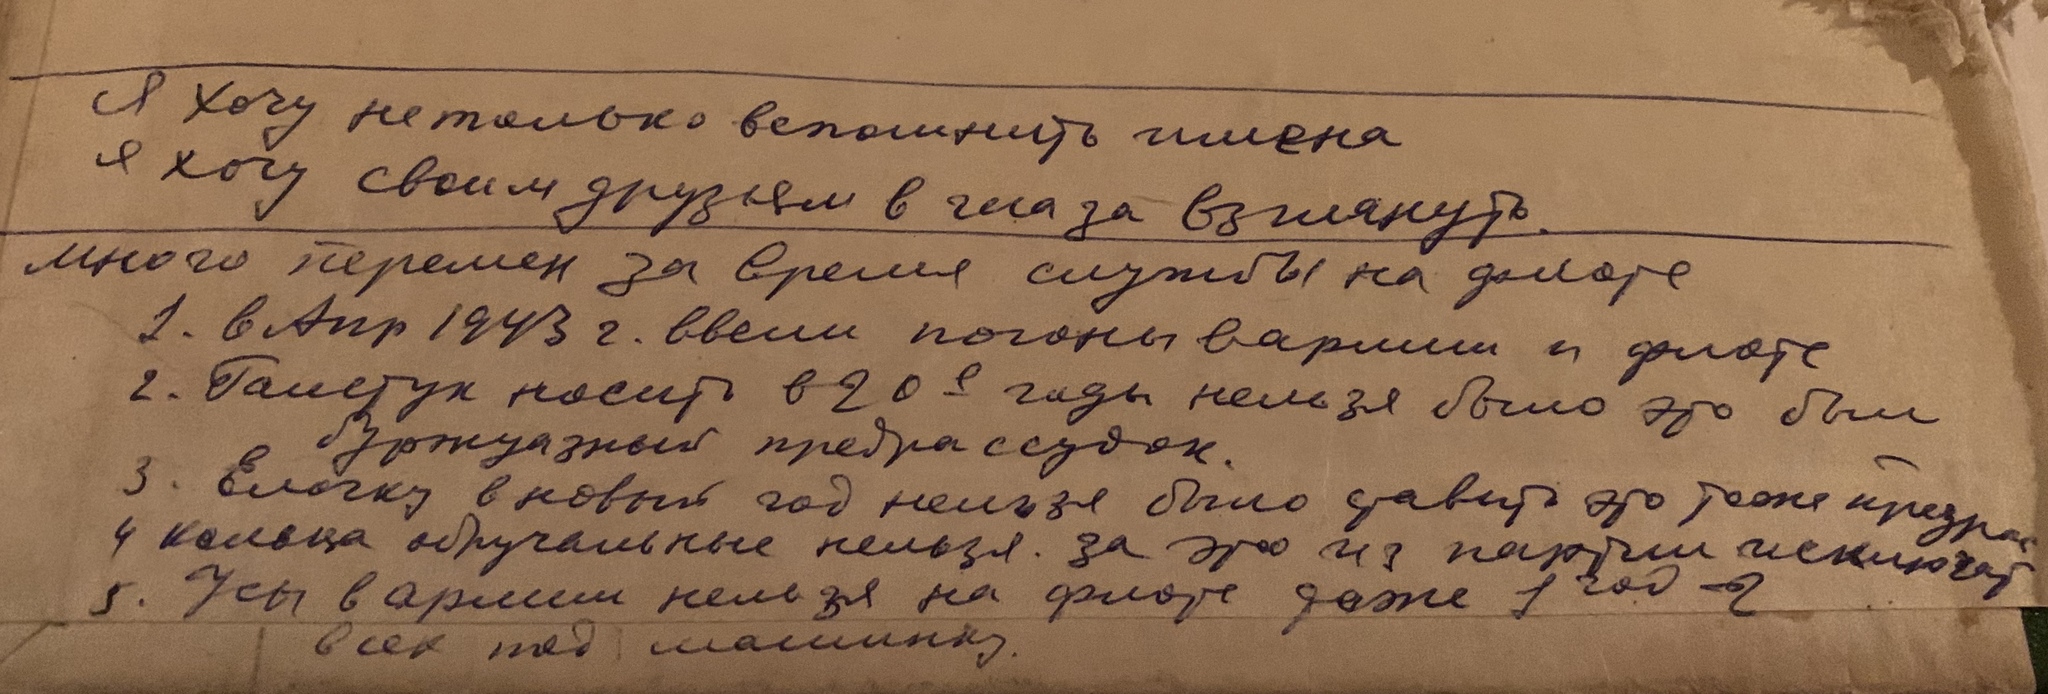 Я хочу не только вспомнить имена
Я хочу своим друзьям в глаза взглянуть.
много перемен за время службы на флоте
1. в Апр 1943 г. ввели погоны в армии и флоте
2. Галстук носить в 20е годы нельзя было это был
буржуазный предрассудок.
3. Елочку в новый год нельзя было ставить это тоже предрас
4 кольца обручальные нельзя. за это из партии исключат
5. Усы в армии нельзя на флоте даже 1 год
всех под машинку.